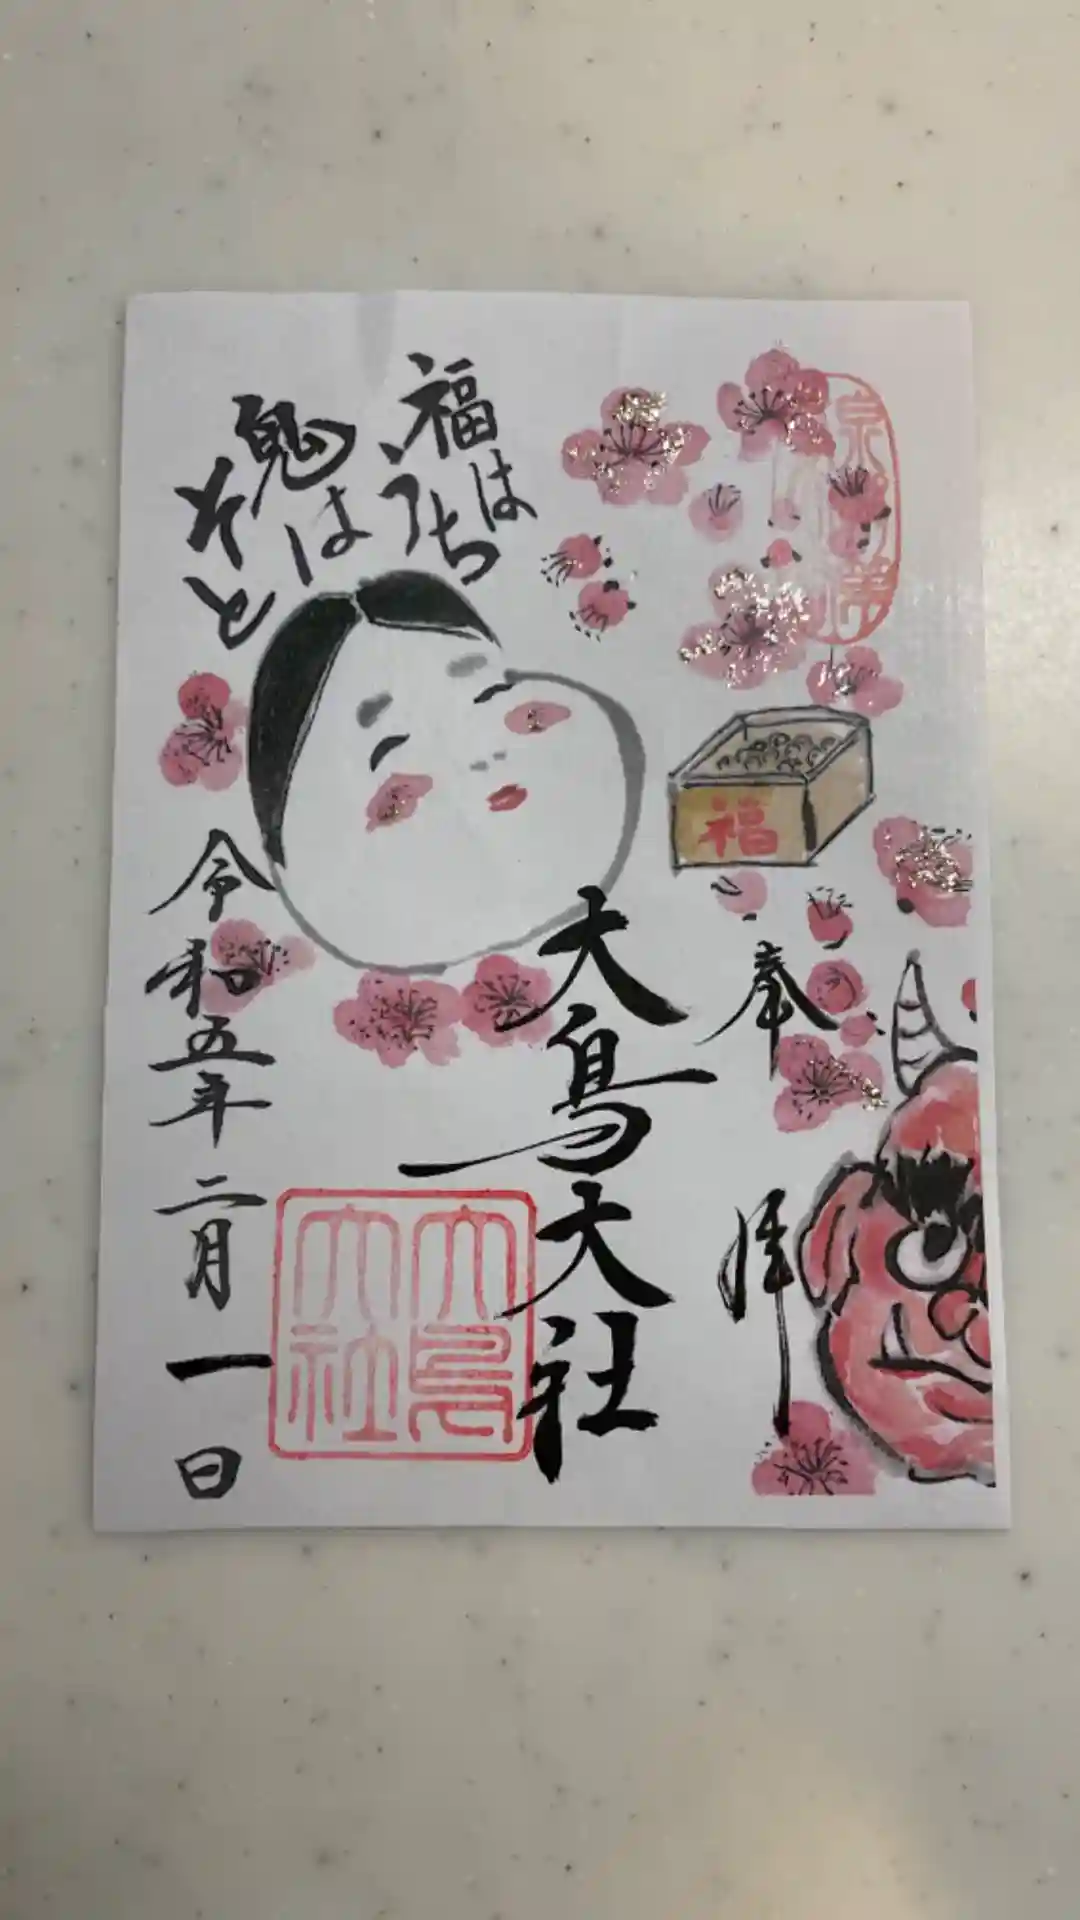 福はうち
鬼はそと
福
奉拝
大鳥大社
大鳥大社
令和五年二月一日